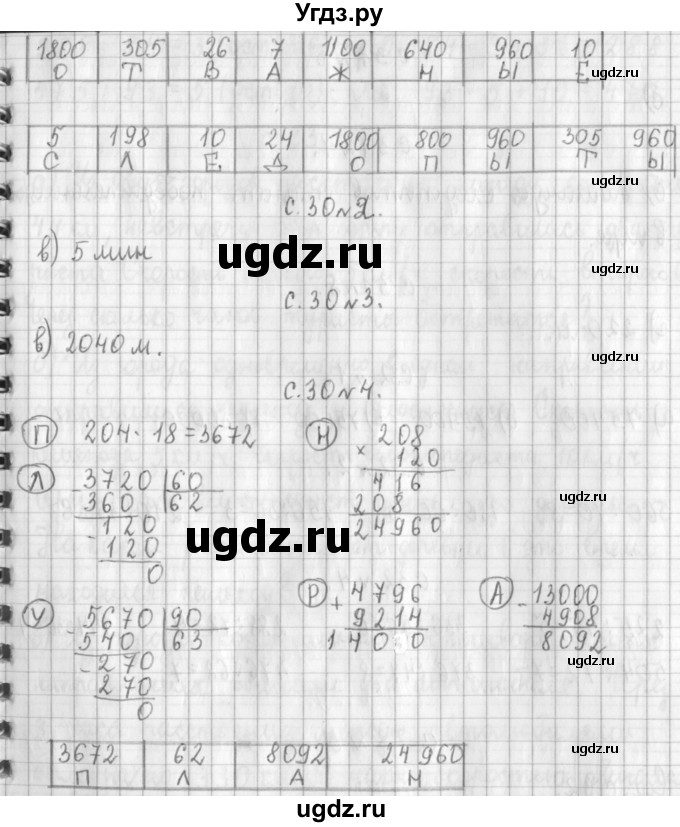 Угдз.ру
1800 305 26 7 1100 640 960 10
О Т В А Ж Н Ы Е
ugdz.ru
5 198 10 24 1800 800 960 305 960
С Л Е Д О П Ы Т Ы
ugdz.ru
ugdz.ru
с. 30 №2.
ugdz.ru
ugdz.ru
в) 5 мин
ugdz.ru
с. 30 №3.
в) 2040 м.
ugdz.ru
с. 30 №4.
П 204 · 18 = 3672
Н 208
× 120
416
208
24960
ugdz.ru
Л - 3720 60
360 62
- 120
120
0
ugdz.ru
ugdz.ru
У - 5670 90
540 63
- 270
270
0
Р + 4796
9214
14010
А - 13000
4908
8092
ugdz.ru
3672 62 8092 24 960
П Л А Н
ugdz.ru
ugdz.ru